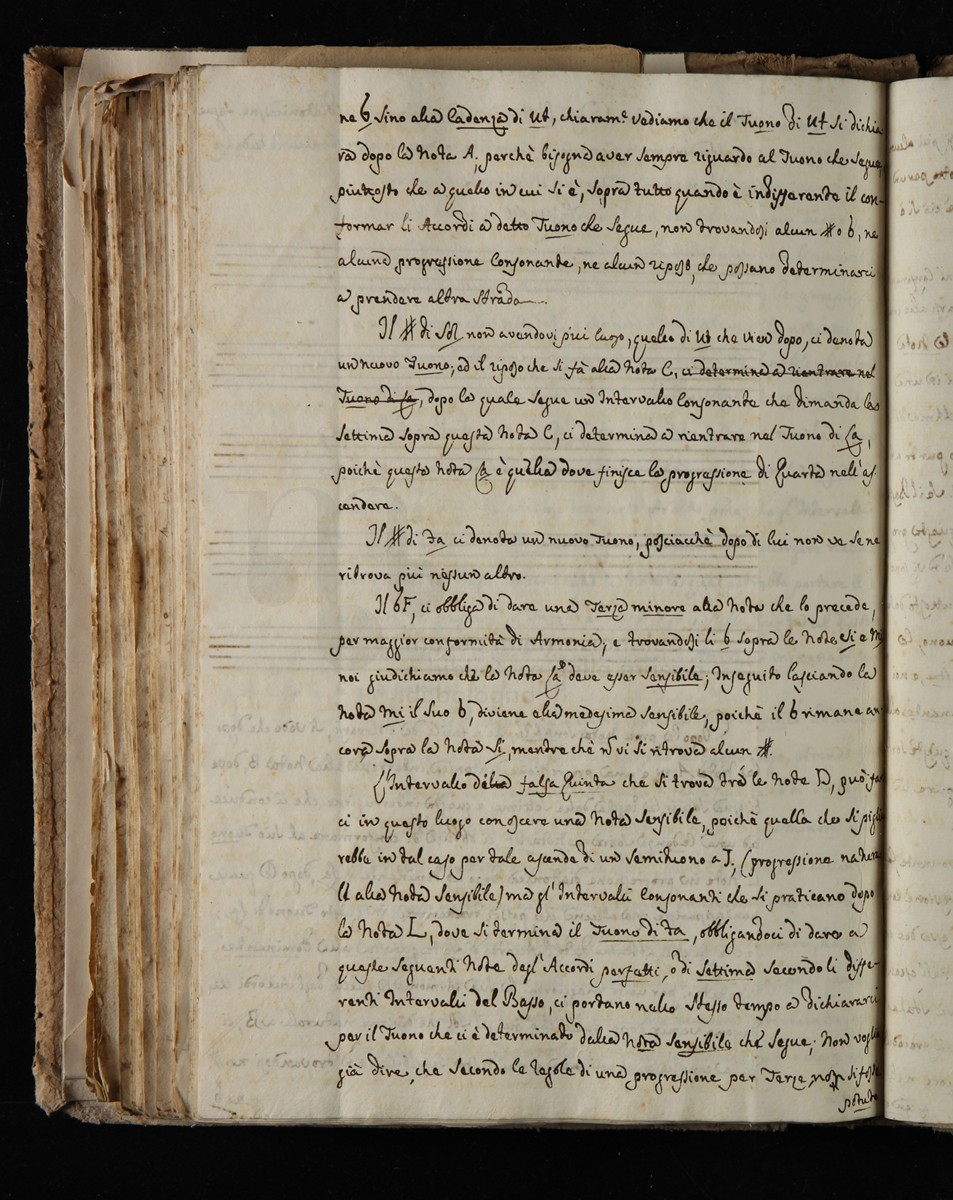 ne b sino alla Cadenza di Ut, chiaram.e vediamo che il Tuono di Ut si dichia
ra dopo la Nota A, perchè bisogna aver sempre riguardo al Tuono che segue
piuttosto che a quello in cui si è, sopra tutto quando è indifferente il con-
formar li Accordi a detto Tuono che segue, non trovandosi alcun # o b, ne
alcuna progressione Consonante, ne alcun riposo, che possano determinarci
a prendere altra strada.
Il # di Sol non avendovi più luogo, quello di Ut che vien dopo, ci denota
un nuovo Tuono; ed il riposo che si fà alla Nota C, ci determina a rientrare nel
Tuono di La, dopo la quale segue un Intervallo Consonante che dimanda la
settima sopra questa Nota C, ci determina a rientrare nel Tuono di La,
poichè questa Nota La è quella dove finisce la progressione di Quarta nell'as-
cendere.
Il # di Fa ci denota un nuovo Tuono, posciacchè dopo di lui non ve se ne
ritrova più nessun altro.
Il b F, ci obbliga di dare una Terza minore alla Nota che lo precede,
per maggior conformità di Armonia; e trovandosi li b sopra le Note Si e Mi
noi giudichiamo che la Nota La deve esser sensibile; Inseguito lasciando la
Nota Mi il suo b, diviene ella medesima sensibile, poichè il b rimane an
cora sopra la Nota Si, mentre chè n vi si ritrova alcun #.
L'Intervallo della falsa Quinta che si trova trà le Note D, può far
ci in questo luogo conoscere una Nota sensibile, poichè quella che si piglie
rebbe in tal caso per tale ascende di un semituono a J, (progressione natura
le alla Nota sensibile) ma gl' Intervalli Consonanti che si praticano dopo
la Nota L, dove si termina il Tuono di Fa, obbligandoci di dare a
queste seguenti Note degl' Accordi perfetti, o di settima secondo li diffe-
renti Intervalli del Basso, ci portano nello stesso tempo a dichiararci
per il Tuono che ci è determinato dalla Nota sensibile che segue; Non voglio
già dire, che secondo le regole di una progressione per Terze non si fosse
potuto